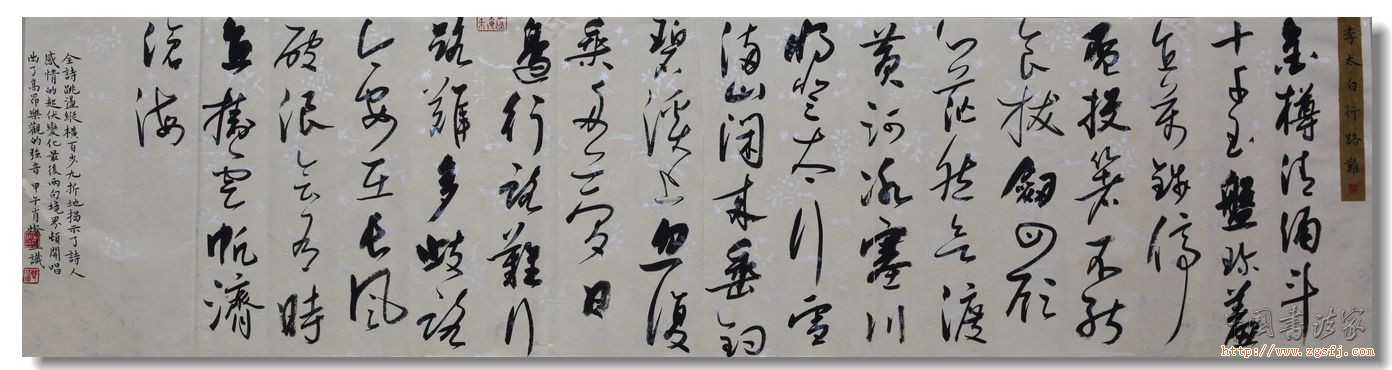 李太白行路難
金樽清酒斗
十千玉盤珍羞
直萬錢停
盃投箸不能
食拔劍四顧
心茫然欲渡
黃河冰塞川
將登太行雪
滿山閑來垂釣
碧溪上忽復
乘舟夢日
邊行路難行
路難多歧路
今安在長風
破浪會有時
直掛雲帆濟
滄海
全詩跳盪縱橫百步九折地揭示了詩人
感情的起伏變化最後兩句境界頓開唱
出了高昂樂觀的強音 甲午肖識
國書法家
http://www.zgsfj.com